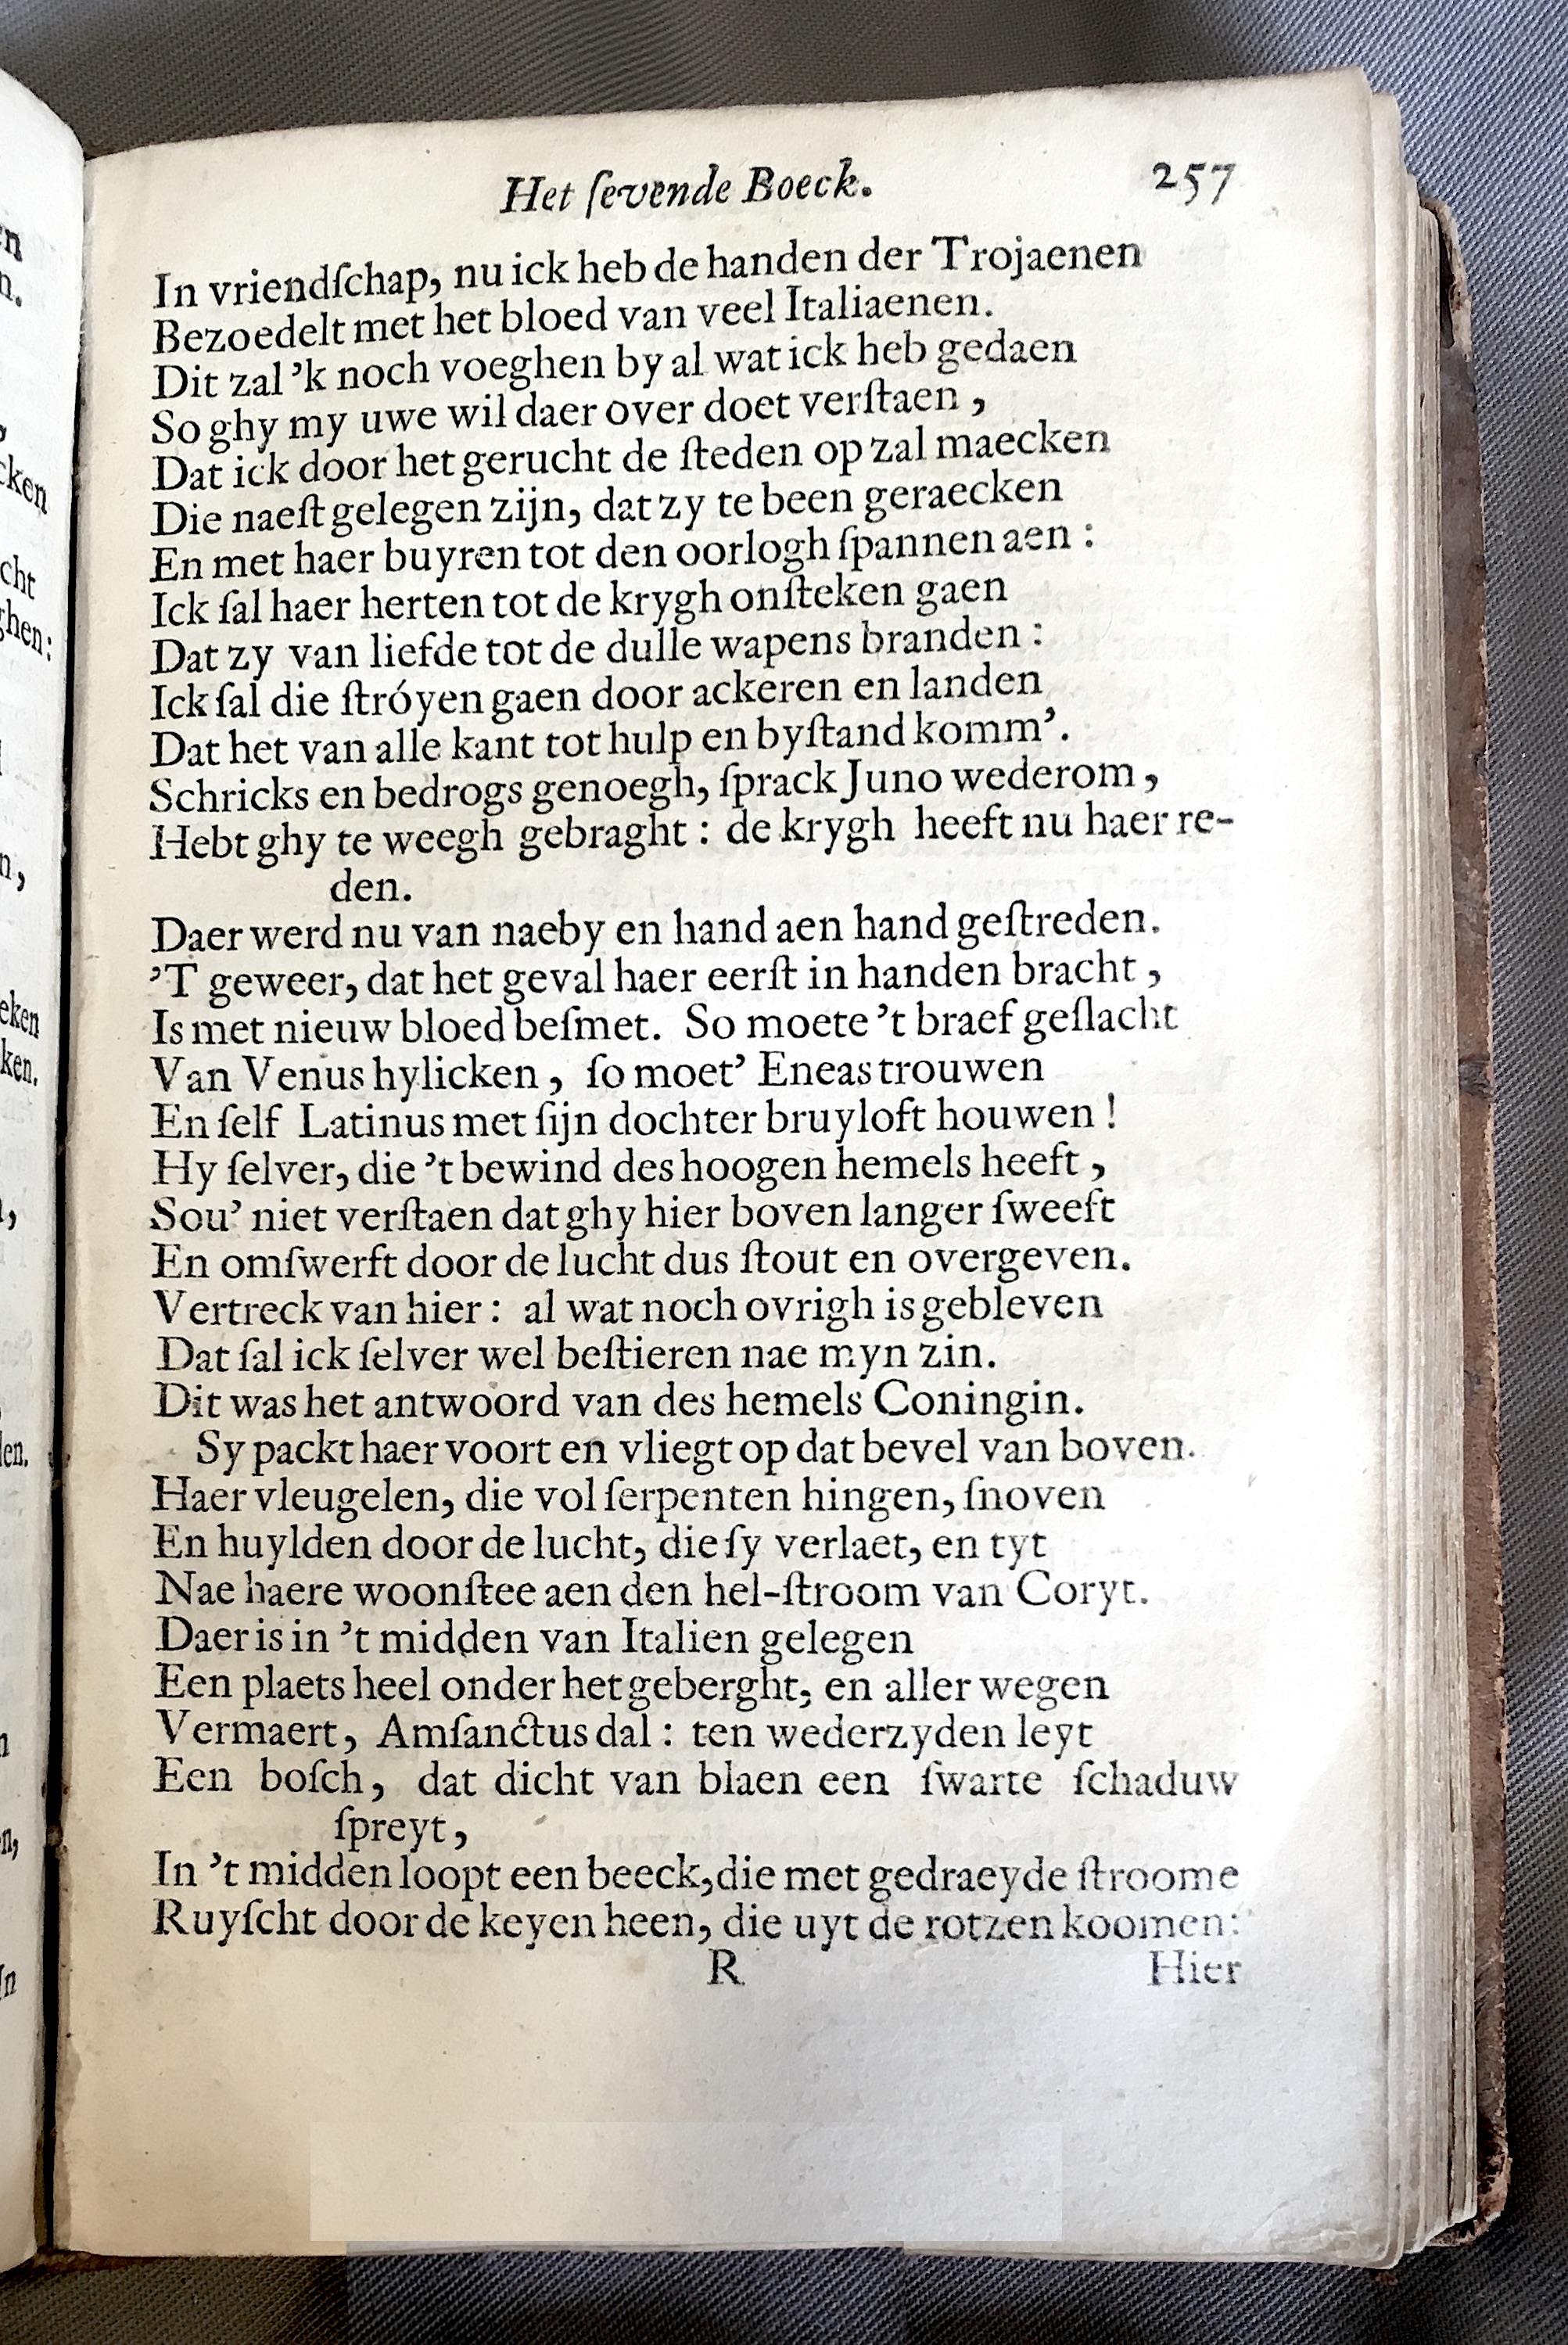 Het ſevende Boeck. 257
In vriendſchap, nu ick heb de handen der Trojaenen
Bezoedelt met het bloed van veel Italiaenen.
Dit zal 'k noch voeghen by al wat ick heb gedaen
So ghy my uwe wil daer over doet verſtaen,
Dat ick door het gerucht de ſteden op zal maecken
Die naeſt gelegen zijn, dat zy te been geraecken
En met haer buyren tot den oorlogh ſpannen aen:
Ick ſal haer herten tot de krygh onſteken gaen
Dat zy van liefde tot de dulle wapens branden:
Ick ſal die ſtróyen gaen door ackeren en landen
Dat het van alle kant tot hulp en byſtand komm'.
Schricks en bedrogs genoegh, ſprack Juno wederom,
Hebt ghy te weegh gebraght: de krygh heeft nu haer re-
den.
Daer werd nu van naeby en hand aen hand geſtreden.
'T geweer, dat het geval haer eerſt in handen bracht,
Is met nieuw bloed beſmet. So moete 't braef geſlacht
Van Venus hylicken, ſo moet' Eneas trouwen
En ſelf Latinus met ſijn dochter bruyloft houwen!
Hy ſelver, die 't bewind des hoogen hemels heeft,
Sou' niet verſtaen dat ghy hier boven langer ſweeft
En omſwerft door de lucht dus ſtout en overgeven.
Vertreck van hier: al wat noch ovrigh is gebleven
Dat ſal ick ſelver wel beſtieren nae myn zin.
Dit was het antwoord van des hemels Coningin.
Sy packt haer voort en vliegt op dat bevel van boven.
Haer vleugelen, die vol ſerpenten hingen, ſnoven
En huylden door de lucht, die ſy verlaet, en tyt
Nae haere woonſtee aen den hel-ſtroom van Coryt.
Daer is in 't midden van Italien gelegen
Een plaets heel onder het geberght, en aller wegen
Vermaert, Amſanctus dal: ten wederzyden leyt
Een boſch, dat dicht van blaen een ſwarte ſchaduw
ſpreyt,
In 't midden loopt een beeck, die met gedraeyde ſtroome
Ruyſcht door de keyen heen, die uyt de rotzen koomen:
R Hier